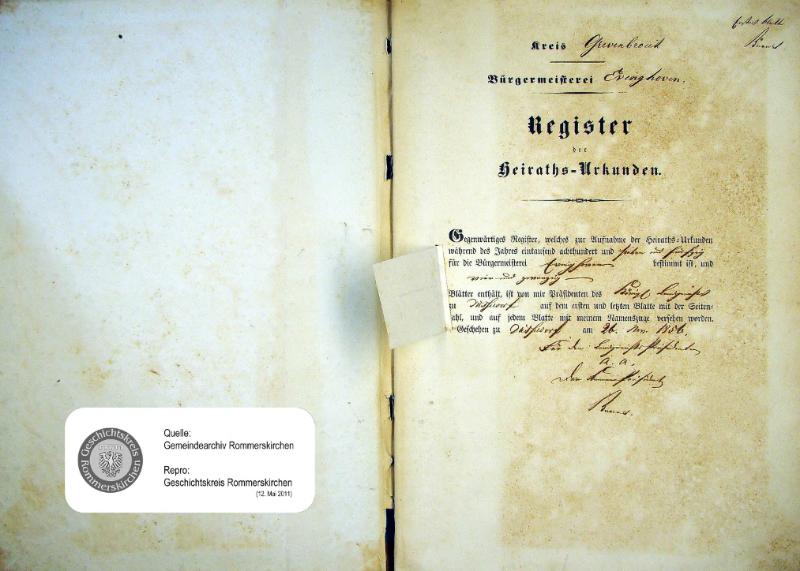 erstes Blatt
Kreis Grevenbroich
Bürgermeisterei Evinghoven.
Register
der
Heiraths-Urkunden.
Gegenwärtiges Register, welches zur Aufnahme der Heiraths-Urkunden
während des Jahres eintausend achthundert und sieben und fünfzig
für die Bürgermeisterei Evinghoven bestimmt ist, und
vier und zwanzig
Blätter enthält, ist von mir Präsidenten des Königl. Landgerichts
zu Düsseldorf auf dem ersten und letzten Blatte mit der Seiten-
zahl, und auf jedem Blatte mit meinem Namenszuge versehen worden.
Geschehen zu Düsseldorf am 26. Nov. 1856.
Für den Landgerichts-Präsidenten
a. a.
Der Kammerpräsident
Quelle:
Gemeindearchiv Rommerskirchen
Repro:
Geschichtskreis Rommerskirchen
(12. Mai 2011)
Geschichtskreis
Rommerskirchen